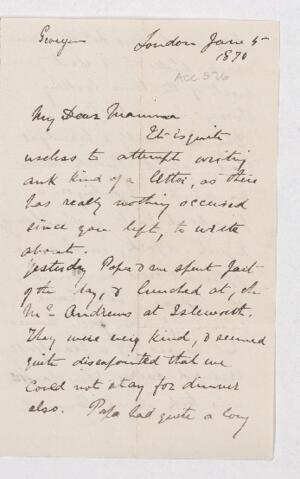 George
London June 5
1870
Acc. 576
My Dear Mamma
It is quite
useless to attempt writing
any kind of a letter, as there
has really nothing occured
since you left, to write
about.
Yesterday Papa & me spent part
of the day, & lunched at, the
Mc Andrews at Isleworth.
They were very kind, & seemed
quite disappointed that we
could not stay for dinner
also. Papa had quite a long